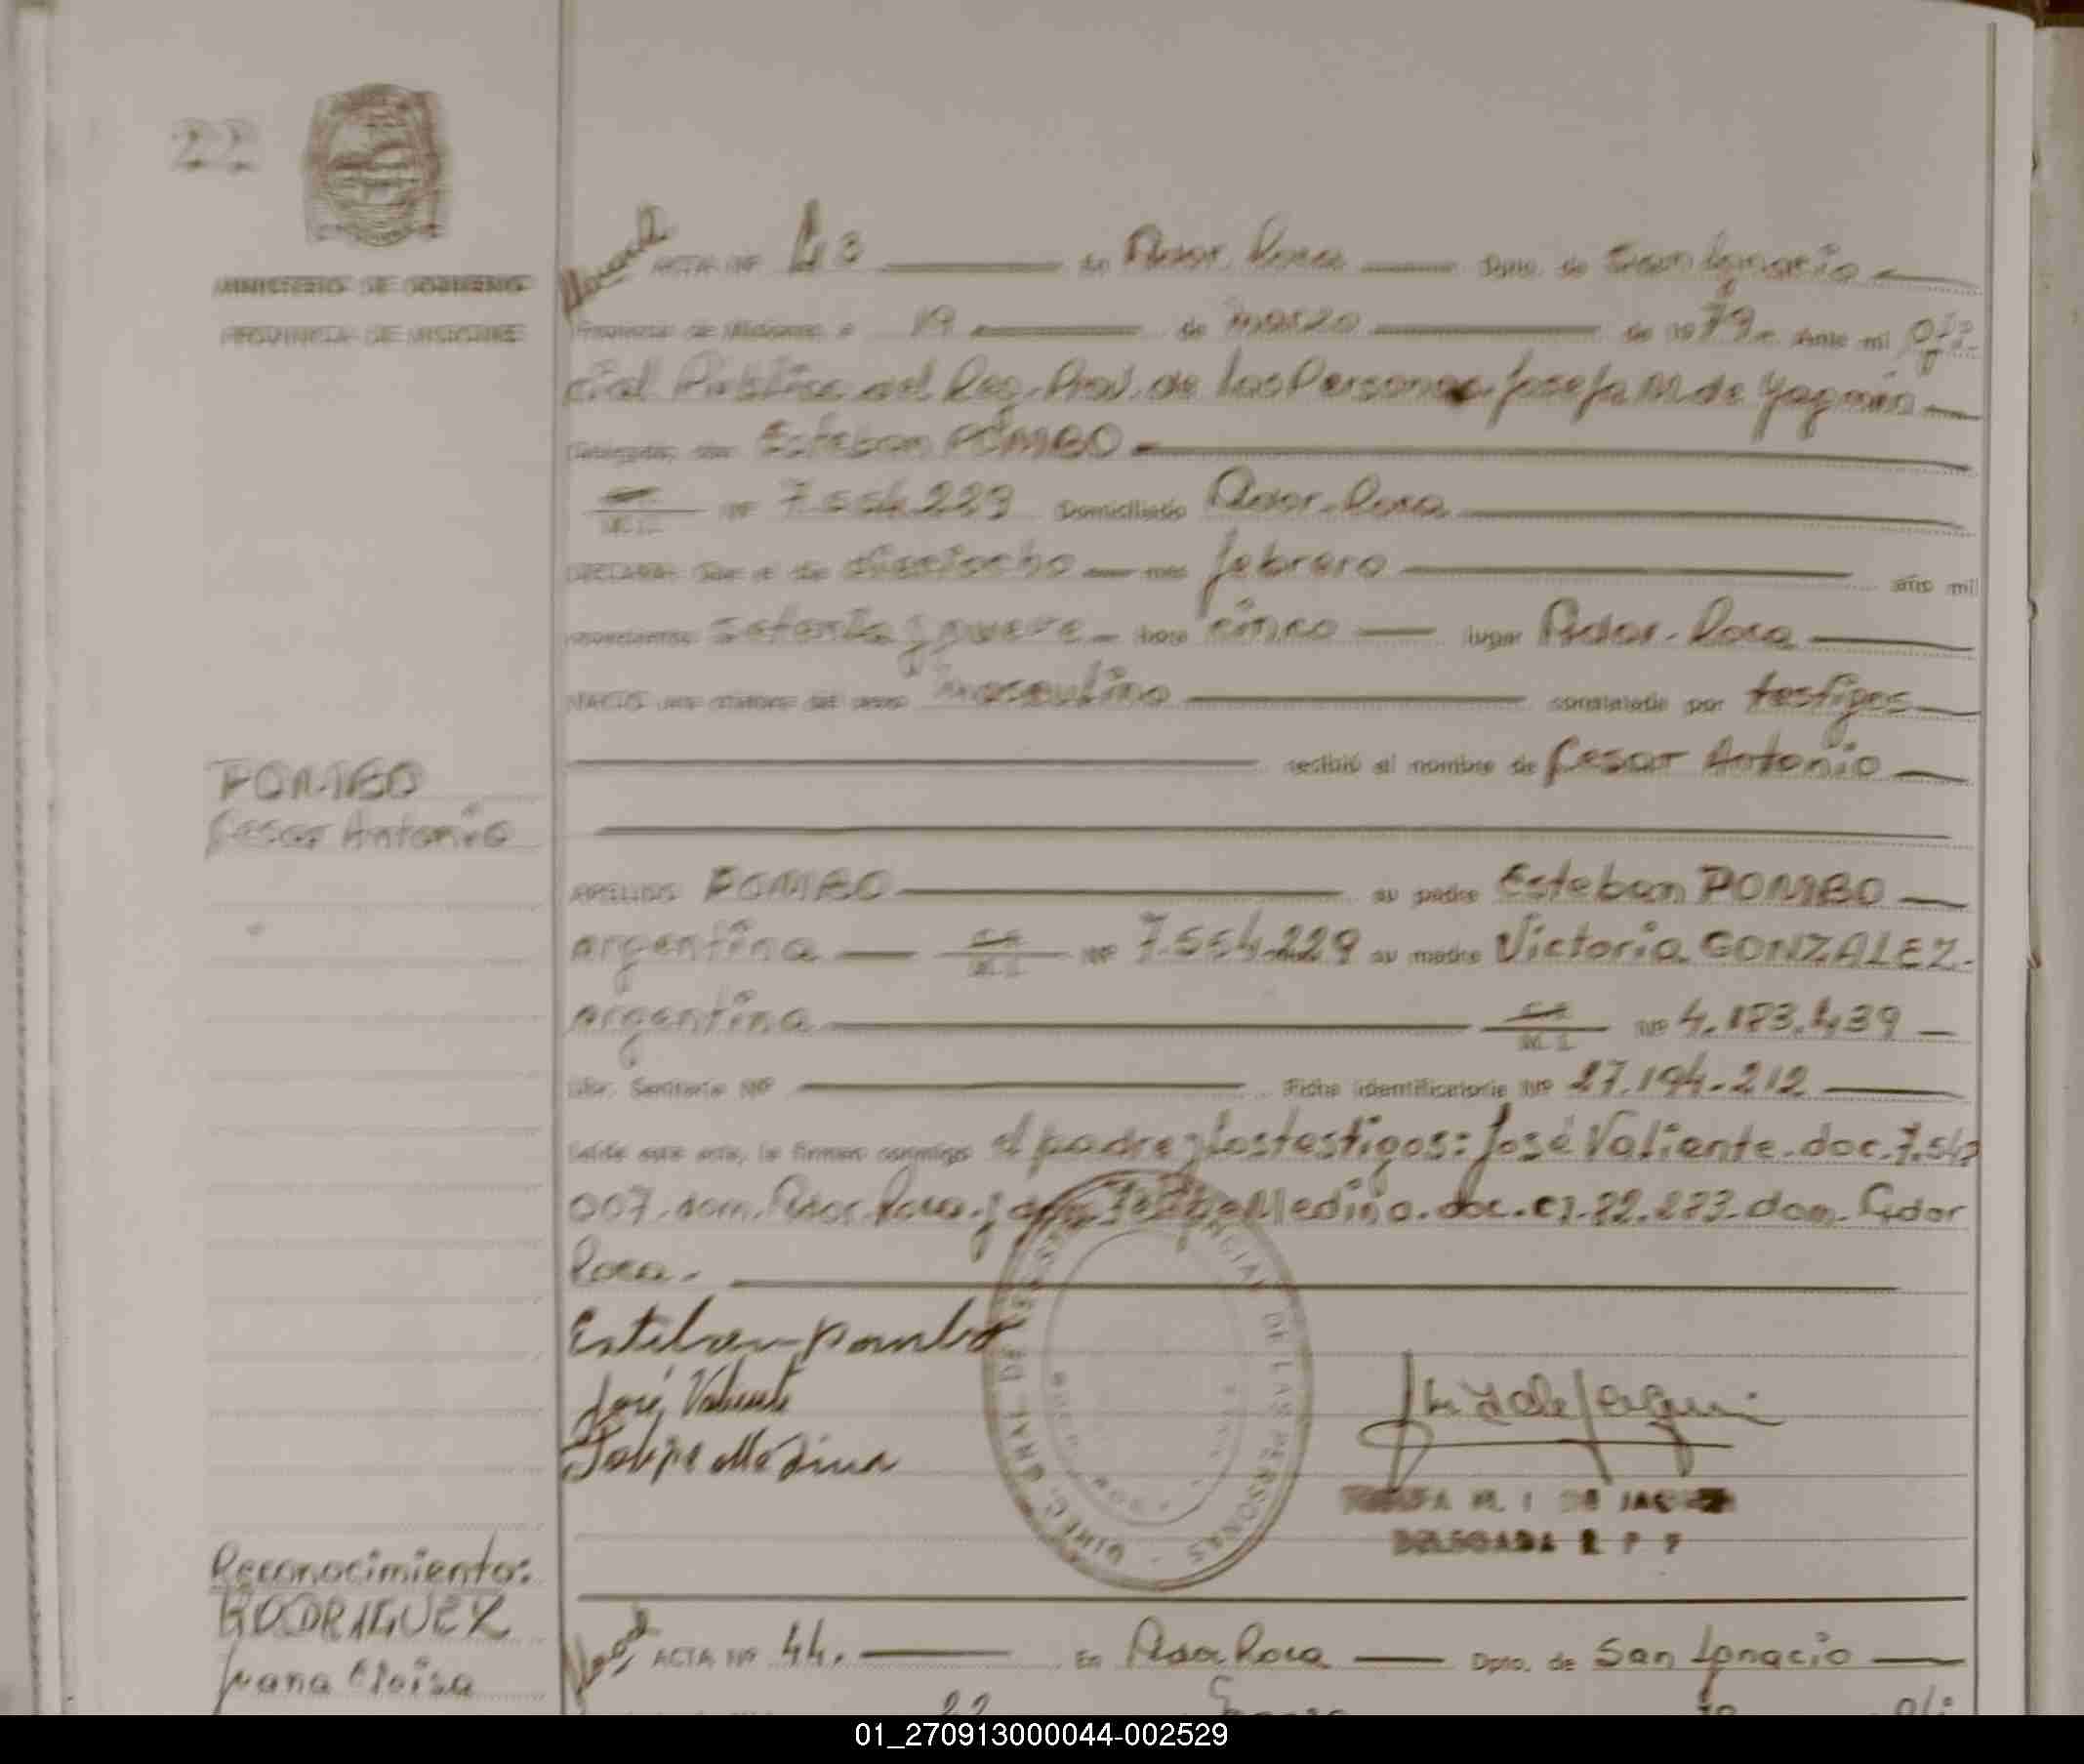 22
MINISTERIO DE GOBIERNO
PROVINCIA DE MISIONES
ACTA Nº 43 en Gdor. Roca Dpto. de San Ignacio
Provincia de Misiones a 19 de marzo de 1979. Ante mi Ofi-
cial Público del Reg. Prov. de las Personas Josefa M de
Esteban POMBO
M.I. Nº 7.554.229 Domiciliado Gdor. Roca
DECLARA: Que el día dieciocho mes febrero año mil
novecientos setenta y nueve hora cinco lugar Gdor. Roca
NACIO una criatura del sexo masculino constatado por testigos
recibió el nombre de Cesar Antonio
POMBO
Cesar Antonio
APELLIDO POMBO su padre Esteban POMBO
argentina M.I. Nº 7.554.229 su madre Victoria GONZALEZ.
argentina M.I. Nº 4.173.439
Libr. Sanitaria Nº Ficha identificatoria Nº 27.194.212
Leída esta acta, la firman conmigo el padre y los testigos: José Valiente. doc. 7.542
007. dom. Gdor Roca. y Felipe Medina. doc. CI. 22.273. dom. Gdor
Roca.
Esteban pombo
José Valiente
Felipe Medina
DIREC. GRAL DE REGISTRO PROVINCIAL DE LAS PERSONAS
DELEGADA R P P
Reconocimiento:
RODRIGUEZ
Juana Eloisa
ACTA Nº 44. En Gdor Roca Dpto. de San Ignacio
22
01_270913000044-002529